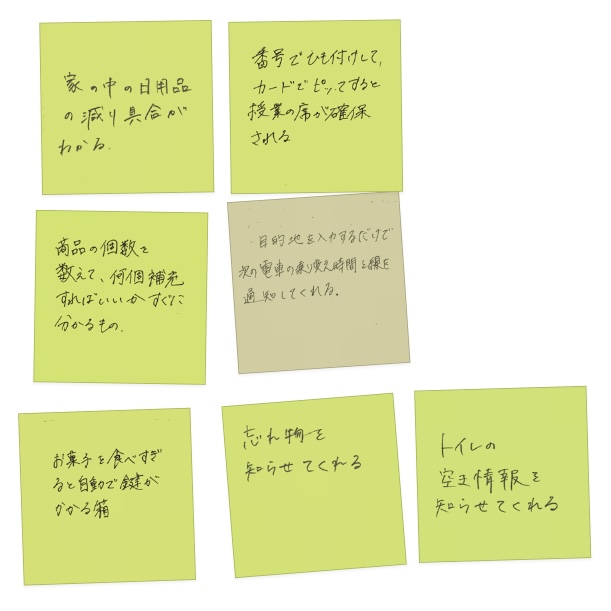 家の中の日用品
の減り具合が
わかる.
番号でひも付けして,
カードでピッてすると
授業の席が確保
される
商品の個数を
数えて、何個補充
すればいいかすぐに
分かるもの.
目的地を入力するだけで
次の電車の乗り変え時間と線を
通知してくれる。
お菓子を食べすぎ
ると自動で鍵が
かかる箱
忘れ物を
知らせてくれる
トイレの
空き情報を
知らせてくれる